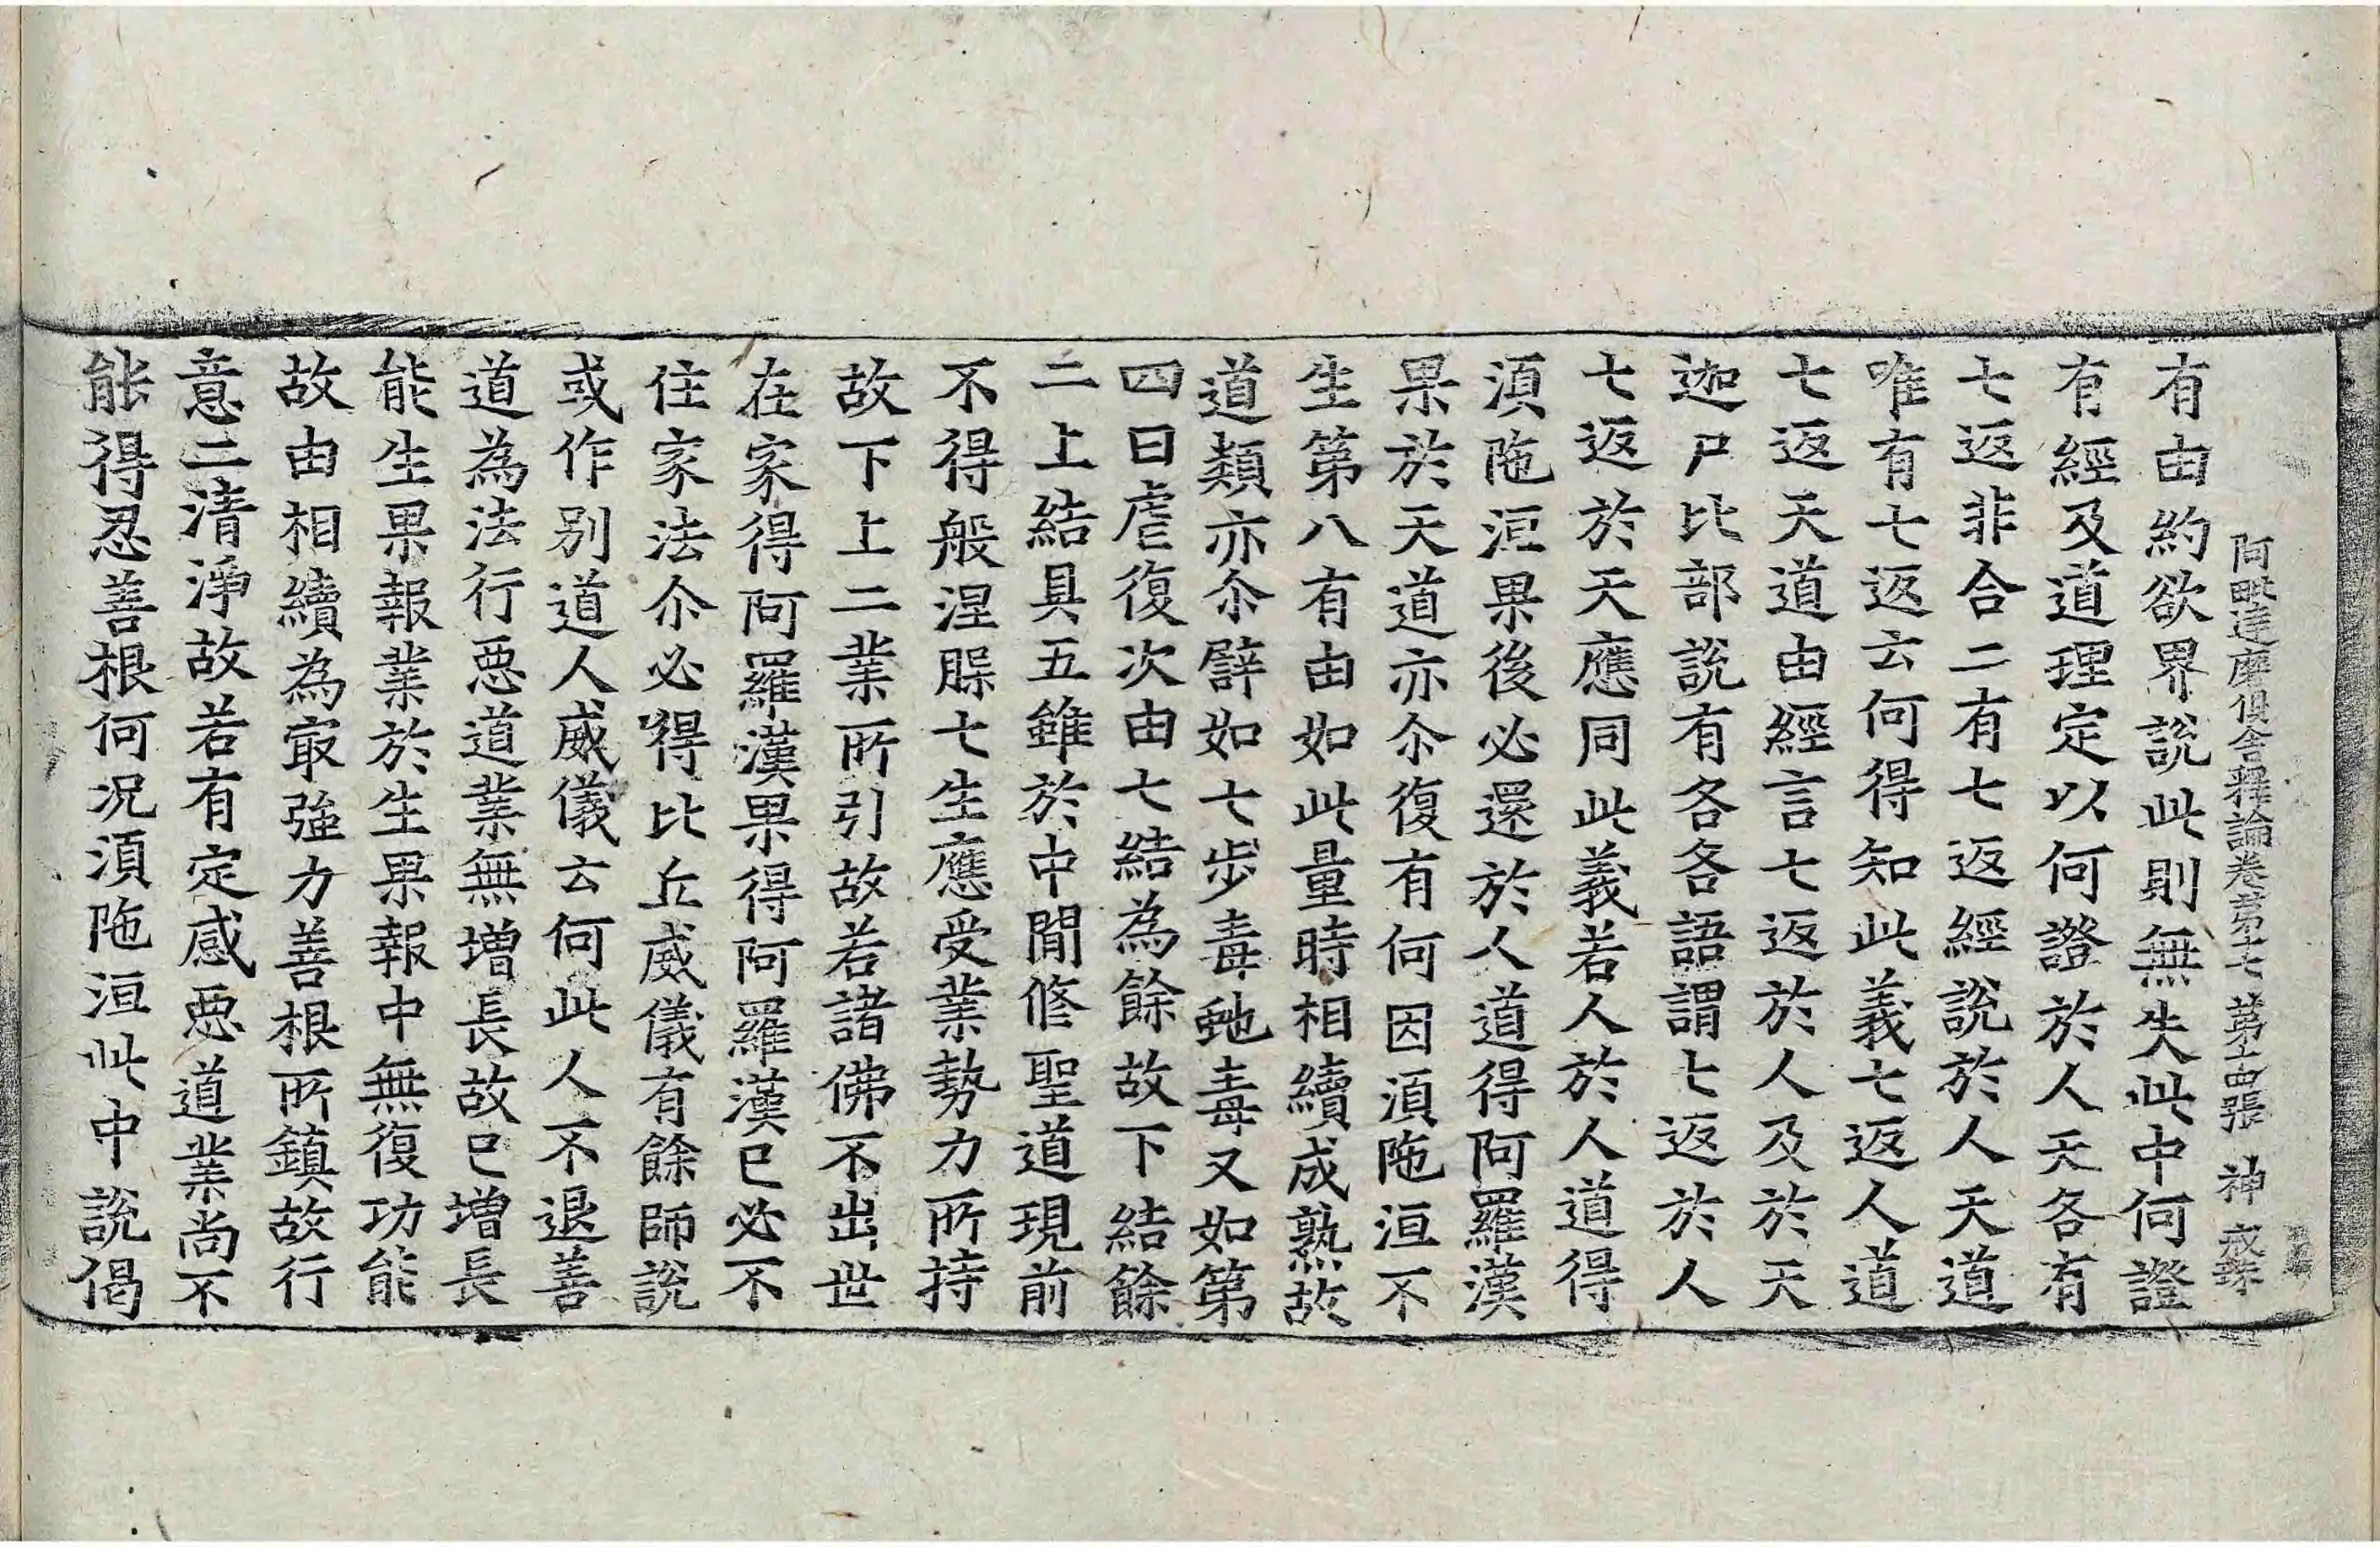 阿毗達摩俱舍釋論卷第十七 第十四張 神
有由約欲界說此則無失此中何證
有經及道理定以何證於人天各有
七返非合二有七返經說於人天道
唯有七返云何得知此義七返人道
七返天道由經言七返於人及於天
迦尸比部說有各各語謂七返於人
七返於天應同此義若人於人道得
湏陁洹果後必還於人道得阿羅漢
果於天道亦尒復有何因湏陁洹不
生第八有由如此量時相續成熟故
道類亦尒譬如七步毒虵毒又如第
四日虐復次由七結為餘故下結餘
二上結具五雖於中間修聖道現前
不得般涅槃七生應受業勢力所持
故下上二業所引故若諸佛不出世
在家得阿羅漢果得阿羅漢已必不
住家法尒必得比丘威儀有餘師說
或作別道人威儀云何此人不退善
道為法行惡道業無增長故已增長
能生果報業於生果報中無復功能
故由相續為㝡強力善根所鎮故行
意二清淨故若有定感惡道業尚不
能得忍善根何况湏陁洹此中說偈